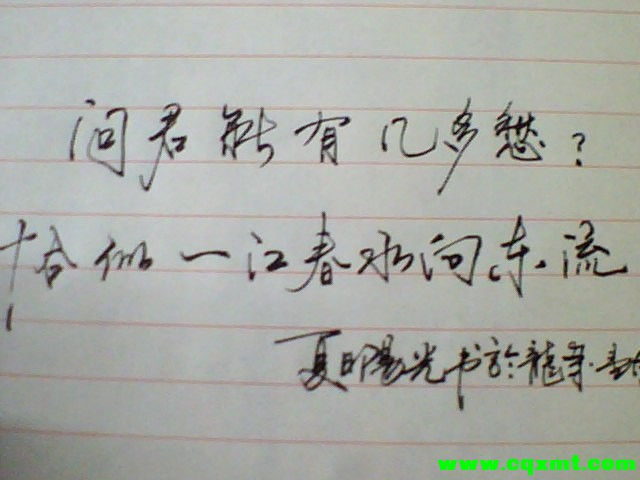 问君能有几多愁？
恰似一江春水向东流
夏日阳光书於龍年
www.cqxmt.com